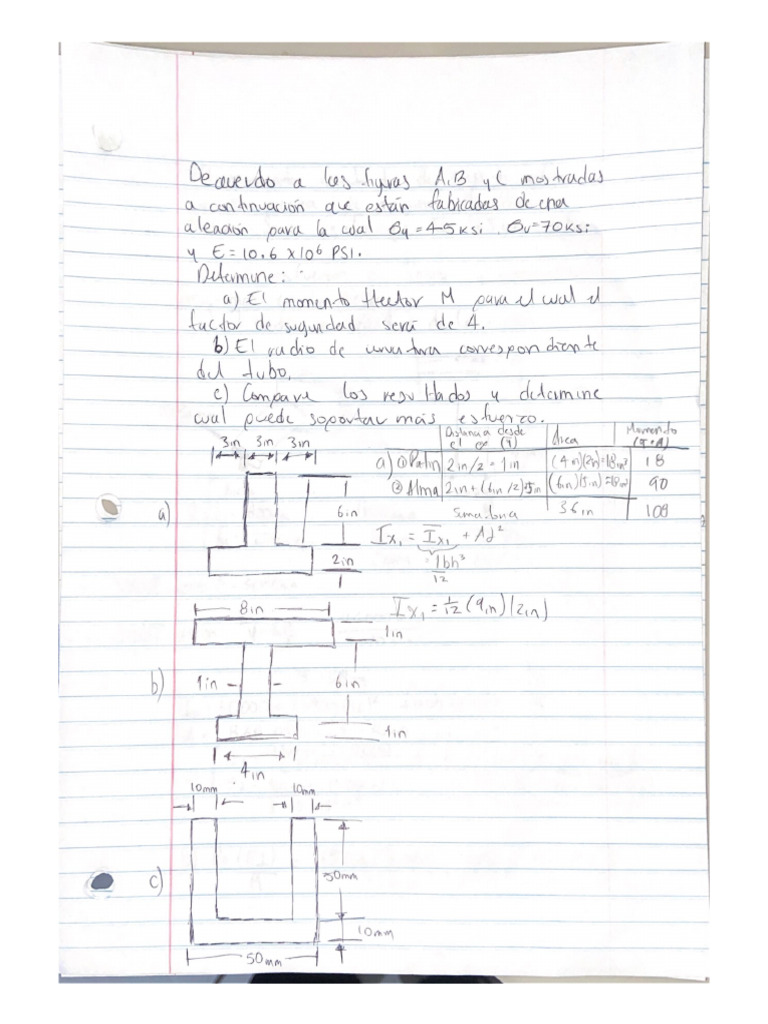 De acuerdo a las figuras A, B y C mostradas
a continuación que están fabricadas de una
aleación para la cual σy = 45 ksi σu = 70 ksi
y E = 10.6 x 10⁶ PSI.
Determine:
a) El momento flector M para el cual el
factor de seguridad será de 4.
b) El radio de curvatura correspondiente
del tubo.
c) Compare los resultados y determine
cual puede soportar más esfuerzo.
3in 3in 3in
Distancia desde el eje (ȳ) Área Momento (ȳ·A)
a) ① Patin 2in/2 = 1in 18
② Alma 2in + (6in/2) = 5in 90
36in 108
a) 6in
2in
Ix₁ = Īx₁ + Ad²
1bh³
12
Ix₁ = 1/12 (9in)(2in)
8in
1in
b) 1in 6in
1in
4in
10mm 10mm
c) 50mm
10mm
50mm